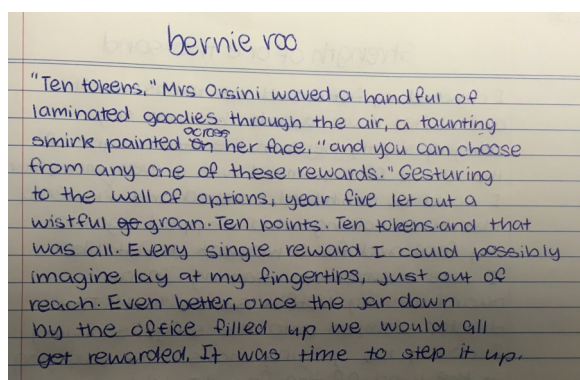 bernie roo
"Ten tokens," Mrs Orsini waved a handful of
laminated goodies through the air, a taunting
smirk painted across her face, "and you can choose
from any one of these rewards." Gesturing
to the wall of options, year five let out a
wistful groan. Ten points. Ten tokens and that
was all. Every single reward I could possibly
imagine lay at my fingertips, just out of
reach. Even better, once the jar down
by the office filled up we would all
get rewarded. It was time to step it up.